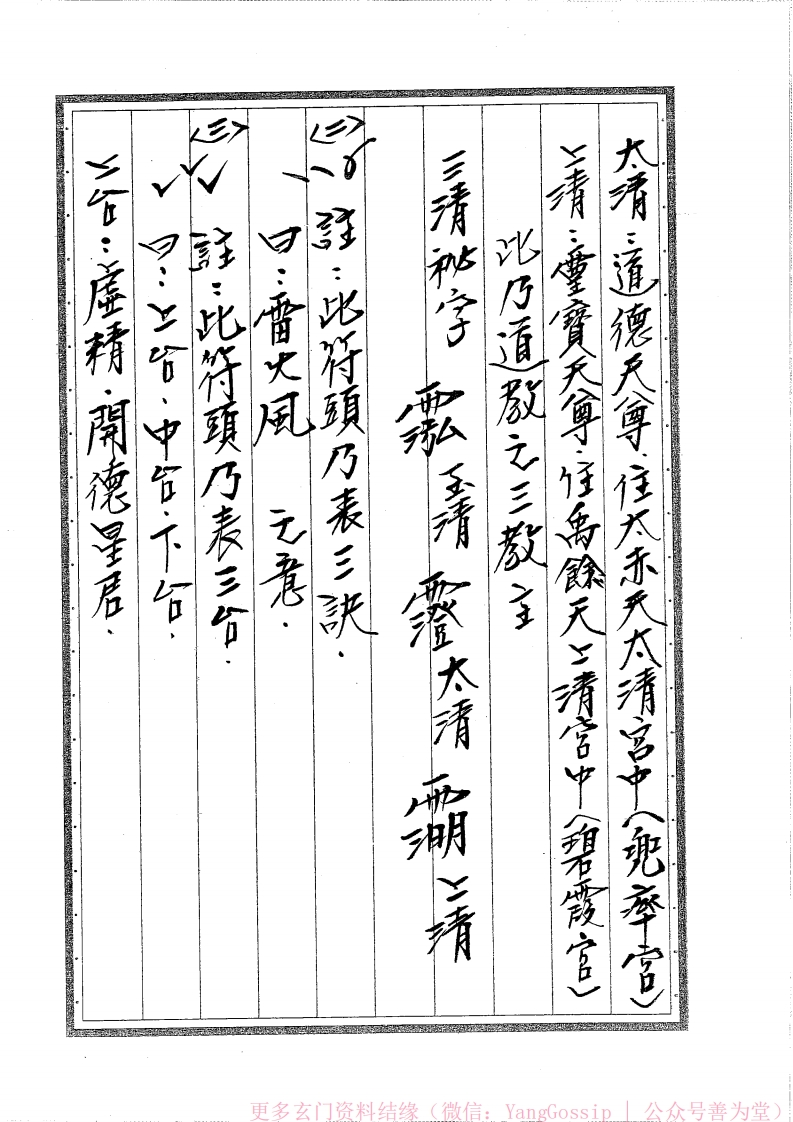 太清：道德天尊．住太赤天太清宮中（兜率宮）
上清：靈寶天尊．住禹餘天上清宮中（碧霞宮）
此乃道教之三教主
三清祕字 玉清 太清 上清
〈三〉 註：此符頭乃表三訣．
曰：雷火風 之意．
〈三〉 註：此符頭乃表三台．
曰：上台．中台．下台．
上台：虛精．開德星君．
更多玄门资料结缘（微信：YangGossip | 公众号善为堂）